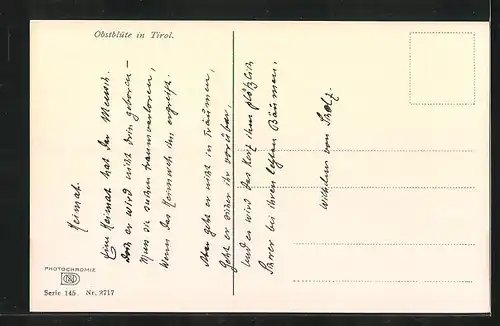 Obstblüte in Tirol.
Heimat.
Eine Heimat hat der Mensch.
Doch er wird nicht drin geboren –
Muss sie suchen traumverloren,
Wenn das Heimweh ihn ergreift.
Aber geht er nicht in Träumen,
Geht er achtlos ihr vorüber,
Und es wird das Herz ihm plötzlich
Schwer bei ihren letzten Bäumen.
Wilhelm von Scholz.
PHOTOCHROMIE
Serie 145. Nr. 2717